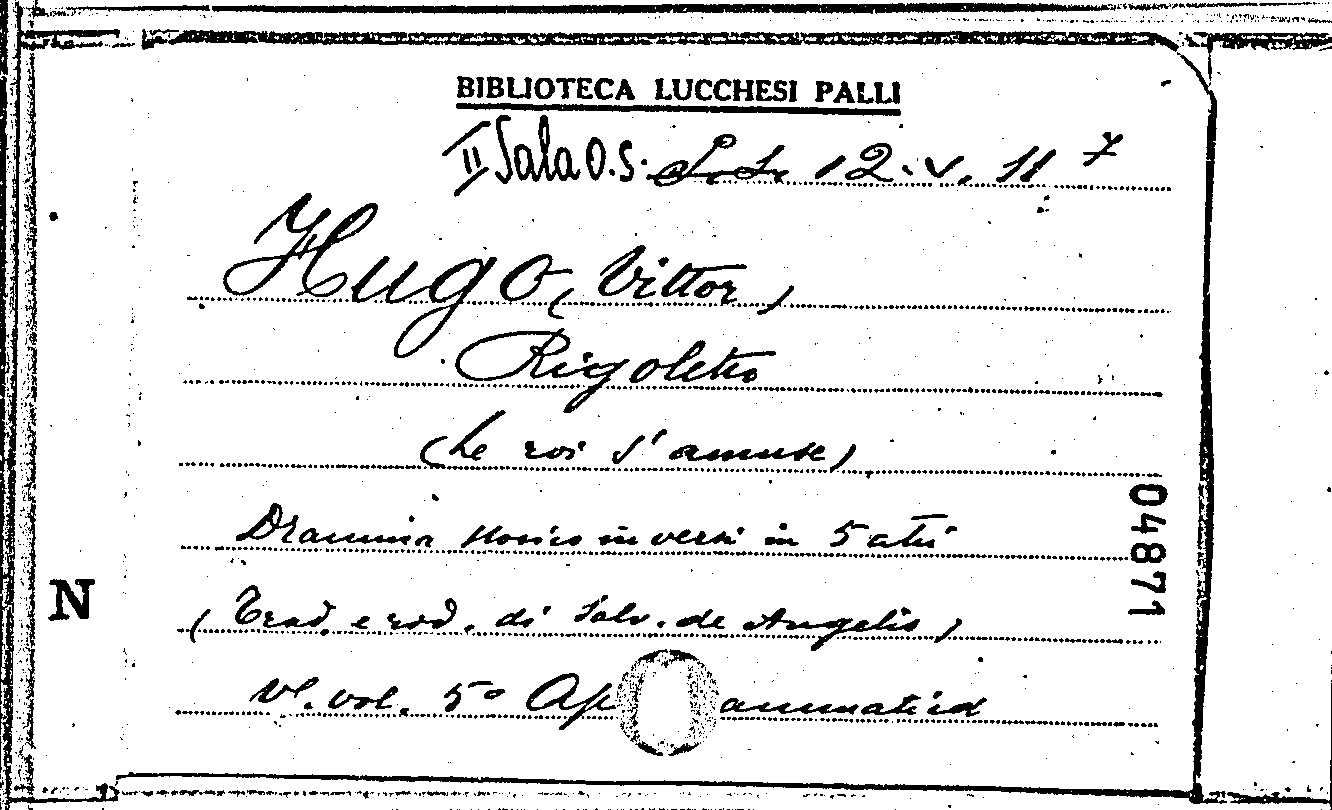 BIBLIOTECA LUCCHESI PALLI
II Sala O.S. 12. V. 11 7
Hugo (Vittor)
Rigoletto
(Le roi s'amuse)
Dramma storico in versi in 5 atti
04871
N
(Trad. e rid. di Salv. de Angelis)
vol. 5º